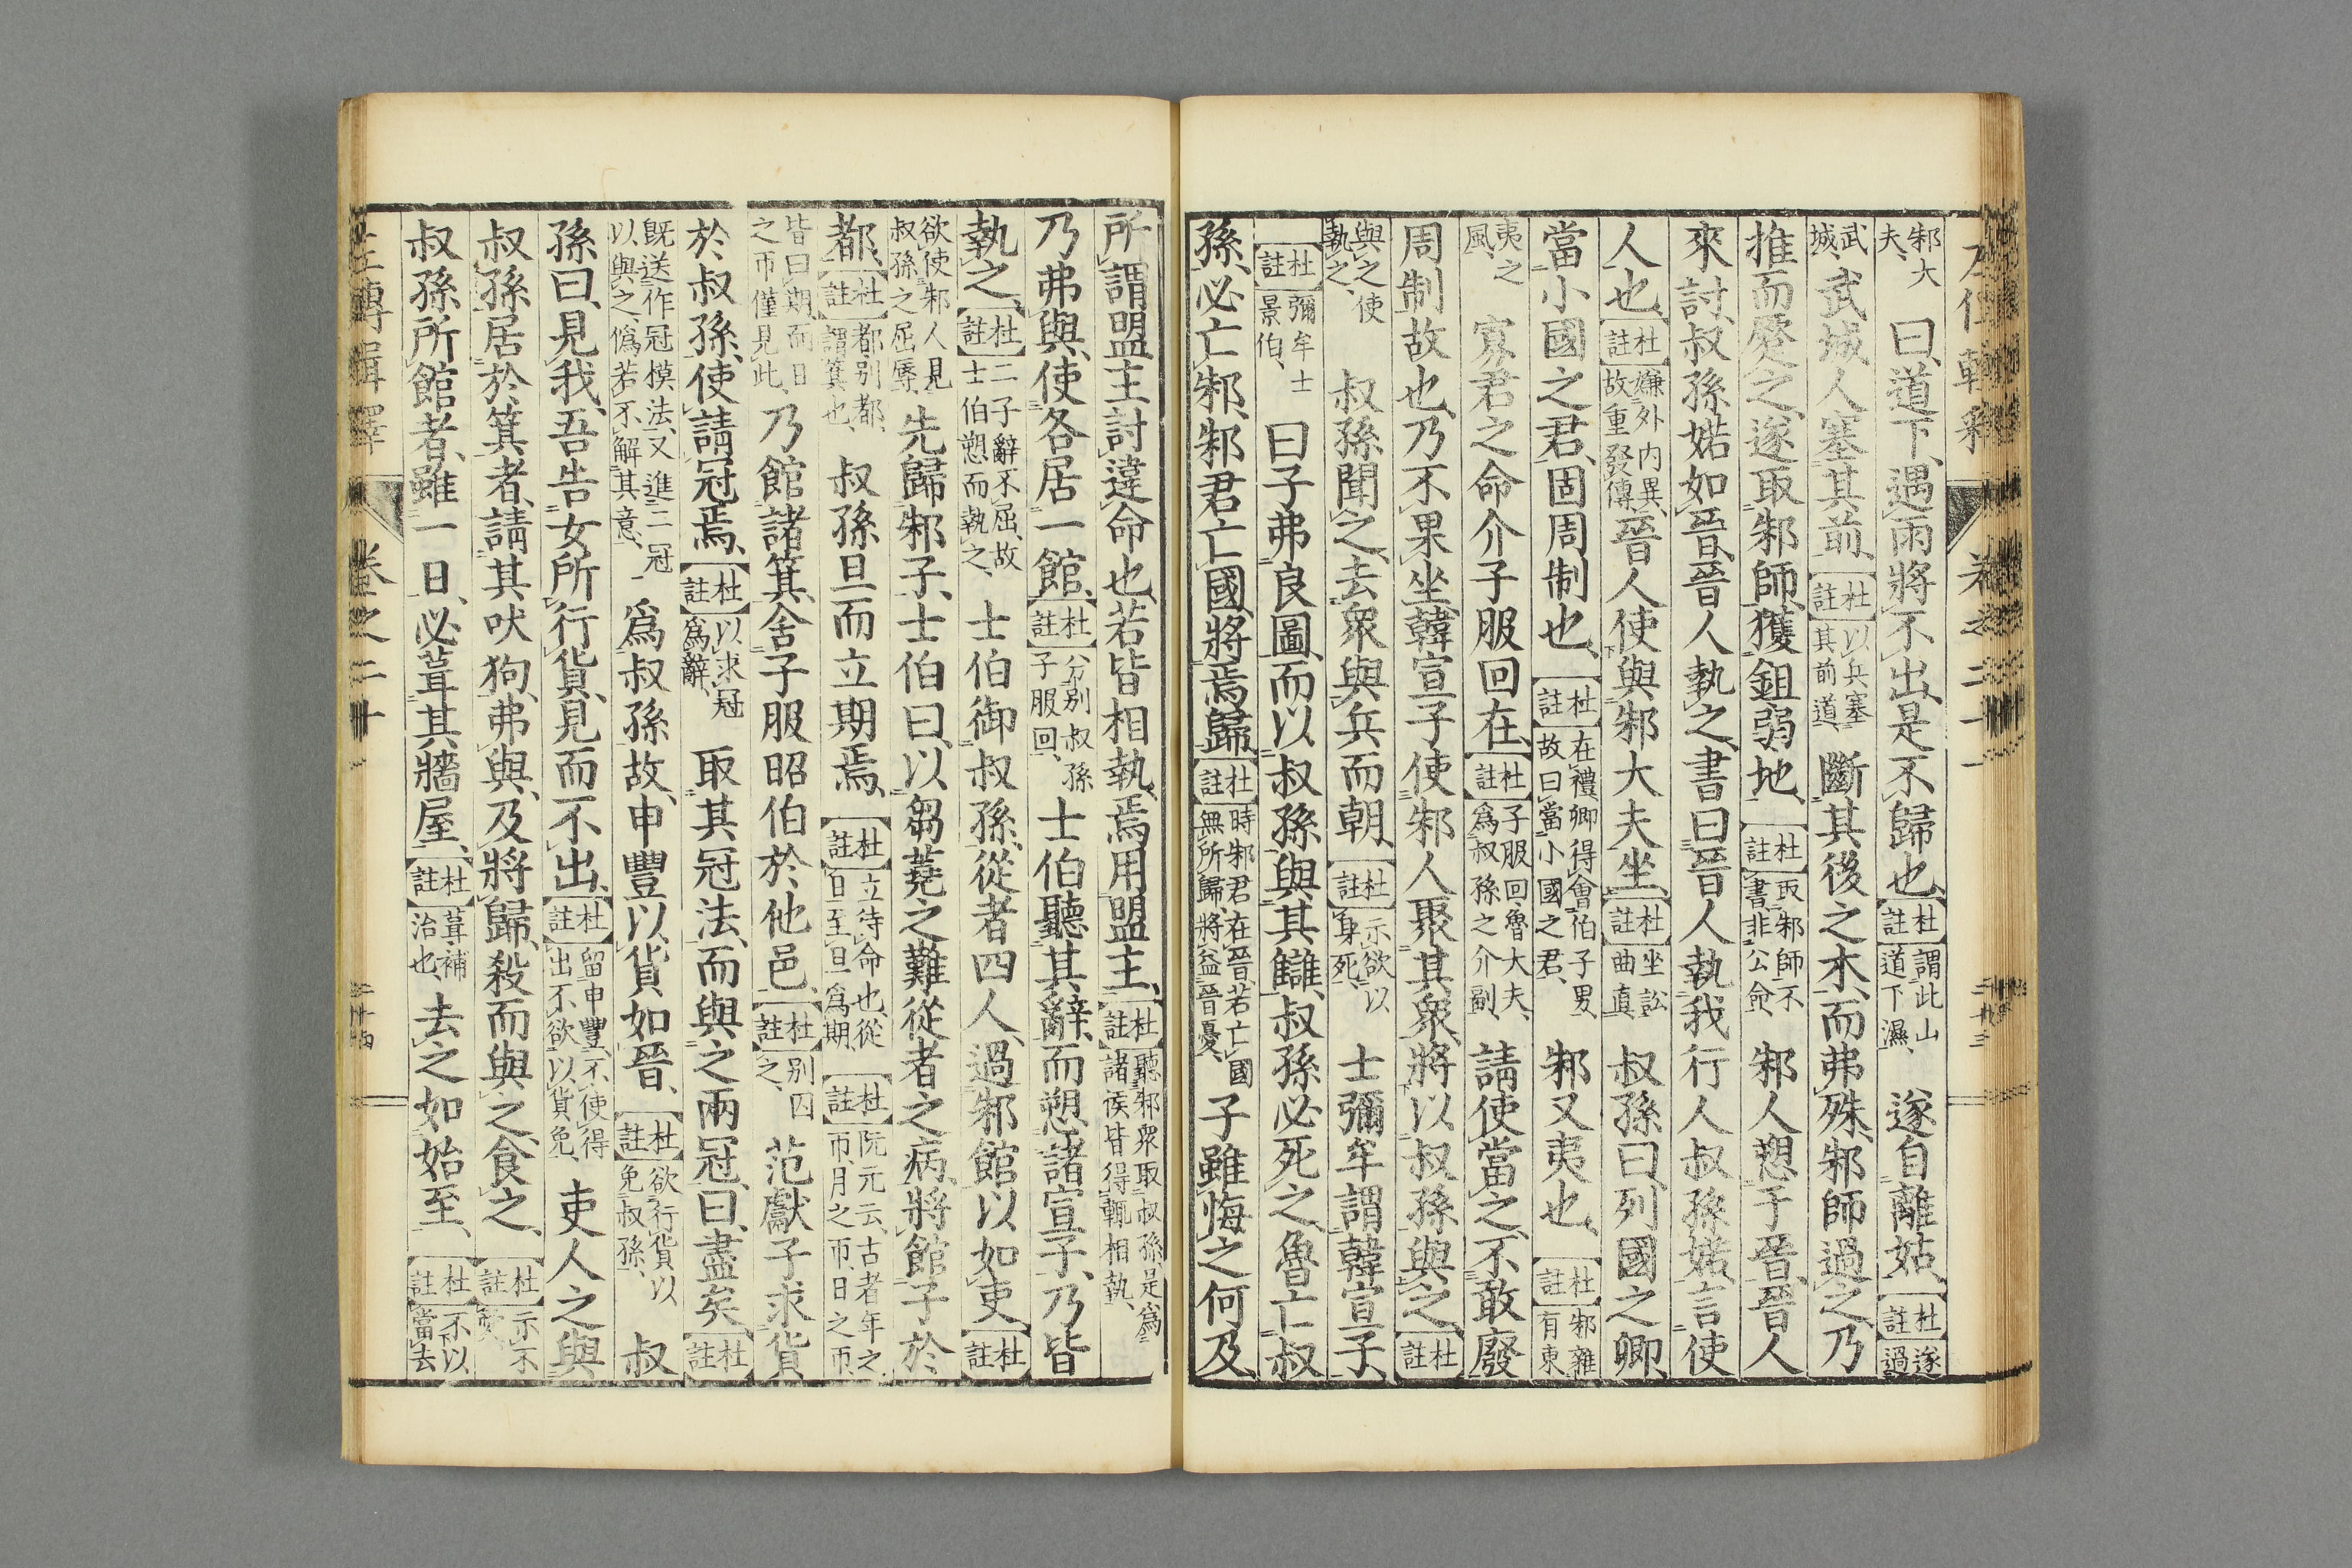 邾大夫、曰、道下、遇雨將不出、是不歸也、【杜註】謂此山道下濕、遂自離姑、【杜註】遂過
武城、武城人塞其前、【杜註】以兵塞其前道、斷其後之木、而弗殊、邾師過之、乃
推而蹷之、遂取邾師、獲鉏弱地、【杜註】取邾師不書、非公命、邾人愬于晉、晉人
來討、叔孫婼如晉、晉人執之、書曰晉人執我行人叔孫婼、言使
人也、【杜註】嫌外內異、故重發傳、晉人使與邾大夫坐、【杜註】坐訟曲直、叔孫曰、列國之卿、
當小國之君、固周制也、【杜註】在禮卿得會伯子男、故曰當小國之君、邾又夷也、【杜註】邾雜有東
夷之風、寡君之命介子服回在、【杜註】子服回、魯大夫、爲叔孫之介副、請使當之、不敢廢
周制故也、乃不果坐、韓宣子使邾人聚其衆、將以叔孫與之、【杜註】
與之使執之、叔孫聞之、去衆與兵而朝、【杜註】示欲以身死、士彌牟謂韓宣子、
【杜註】彌牟士景伯、曰子弗良圖、而以叔孫與其讎、叔孫必死之、魯亡叔
孫、必亡邾、邾君亡國、將焉歸、【杜註】時邾君在晉、若亡國無所歸、將益晉憂、子雖悔之何及、
所謂盟主、討違命也、若皆相執、焉用盟主、【杜註】聽邾衆取叔孫、是爲諸侯皆得輒相執、
乃弗與、使各居一館、【杜註】分別叔孫子服回、士伯聽其辭、而愬諸宣子、乃皆
執之、【杜註】二子辭不屈、故士伯愬而執之、士伯御叔孫、從者四人、過邾館以如吏、【杜註】
欲使邾人見叔孫之屈辱、先歸邾子、士伯曰、以芻蕘之難從者之病、將館子於
都、【杜註】都別都、謂箕也、叔孫旦而立期焉、【杜註】立待命也、從旦至旦爲期、【杜註】阮元云、古者年之帀、月之帀、日之帀、
皆曰期、而日之帀僅見此、乃館諸箕、舍子服昭伯於他邑、【杜註】別囚之、范獻子求貨
於叔孫、使請冠焉、【杜註】以求冠爲辭、取其冠法、而與之兩冠、曰、盡矣、【杜註】
旣送作冠模法、又進二冠以與之、僞若不解其意、爲叔孫故、申豐以貨如晉、【杜註】欲行貨以免叔孫、叔
孫曰、見我、吾告女所行貨、見而不出、【杜註】留申豐、不使得出、不欲以貨免、吏人之與
叔孫居於箕者、請其吠狗、弗與、及將歸、殺而與之食之、【杜註】示不愛、
叔孫所館者、雖一日、必葺其牆屋、【杜註】葺、補治也、去之如始至、【杜註】不以當去
左傳輯釋 卷之二十